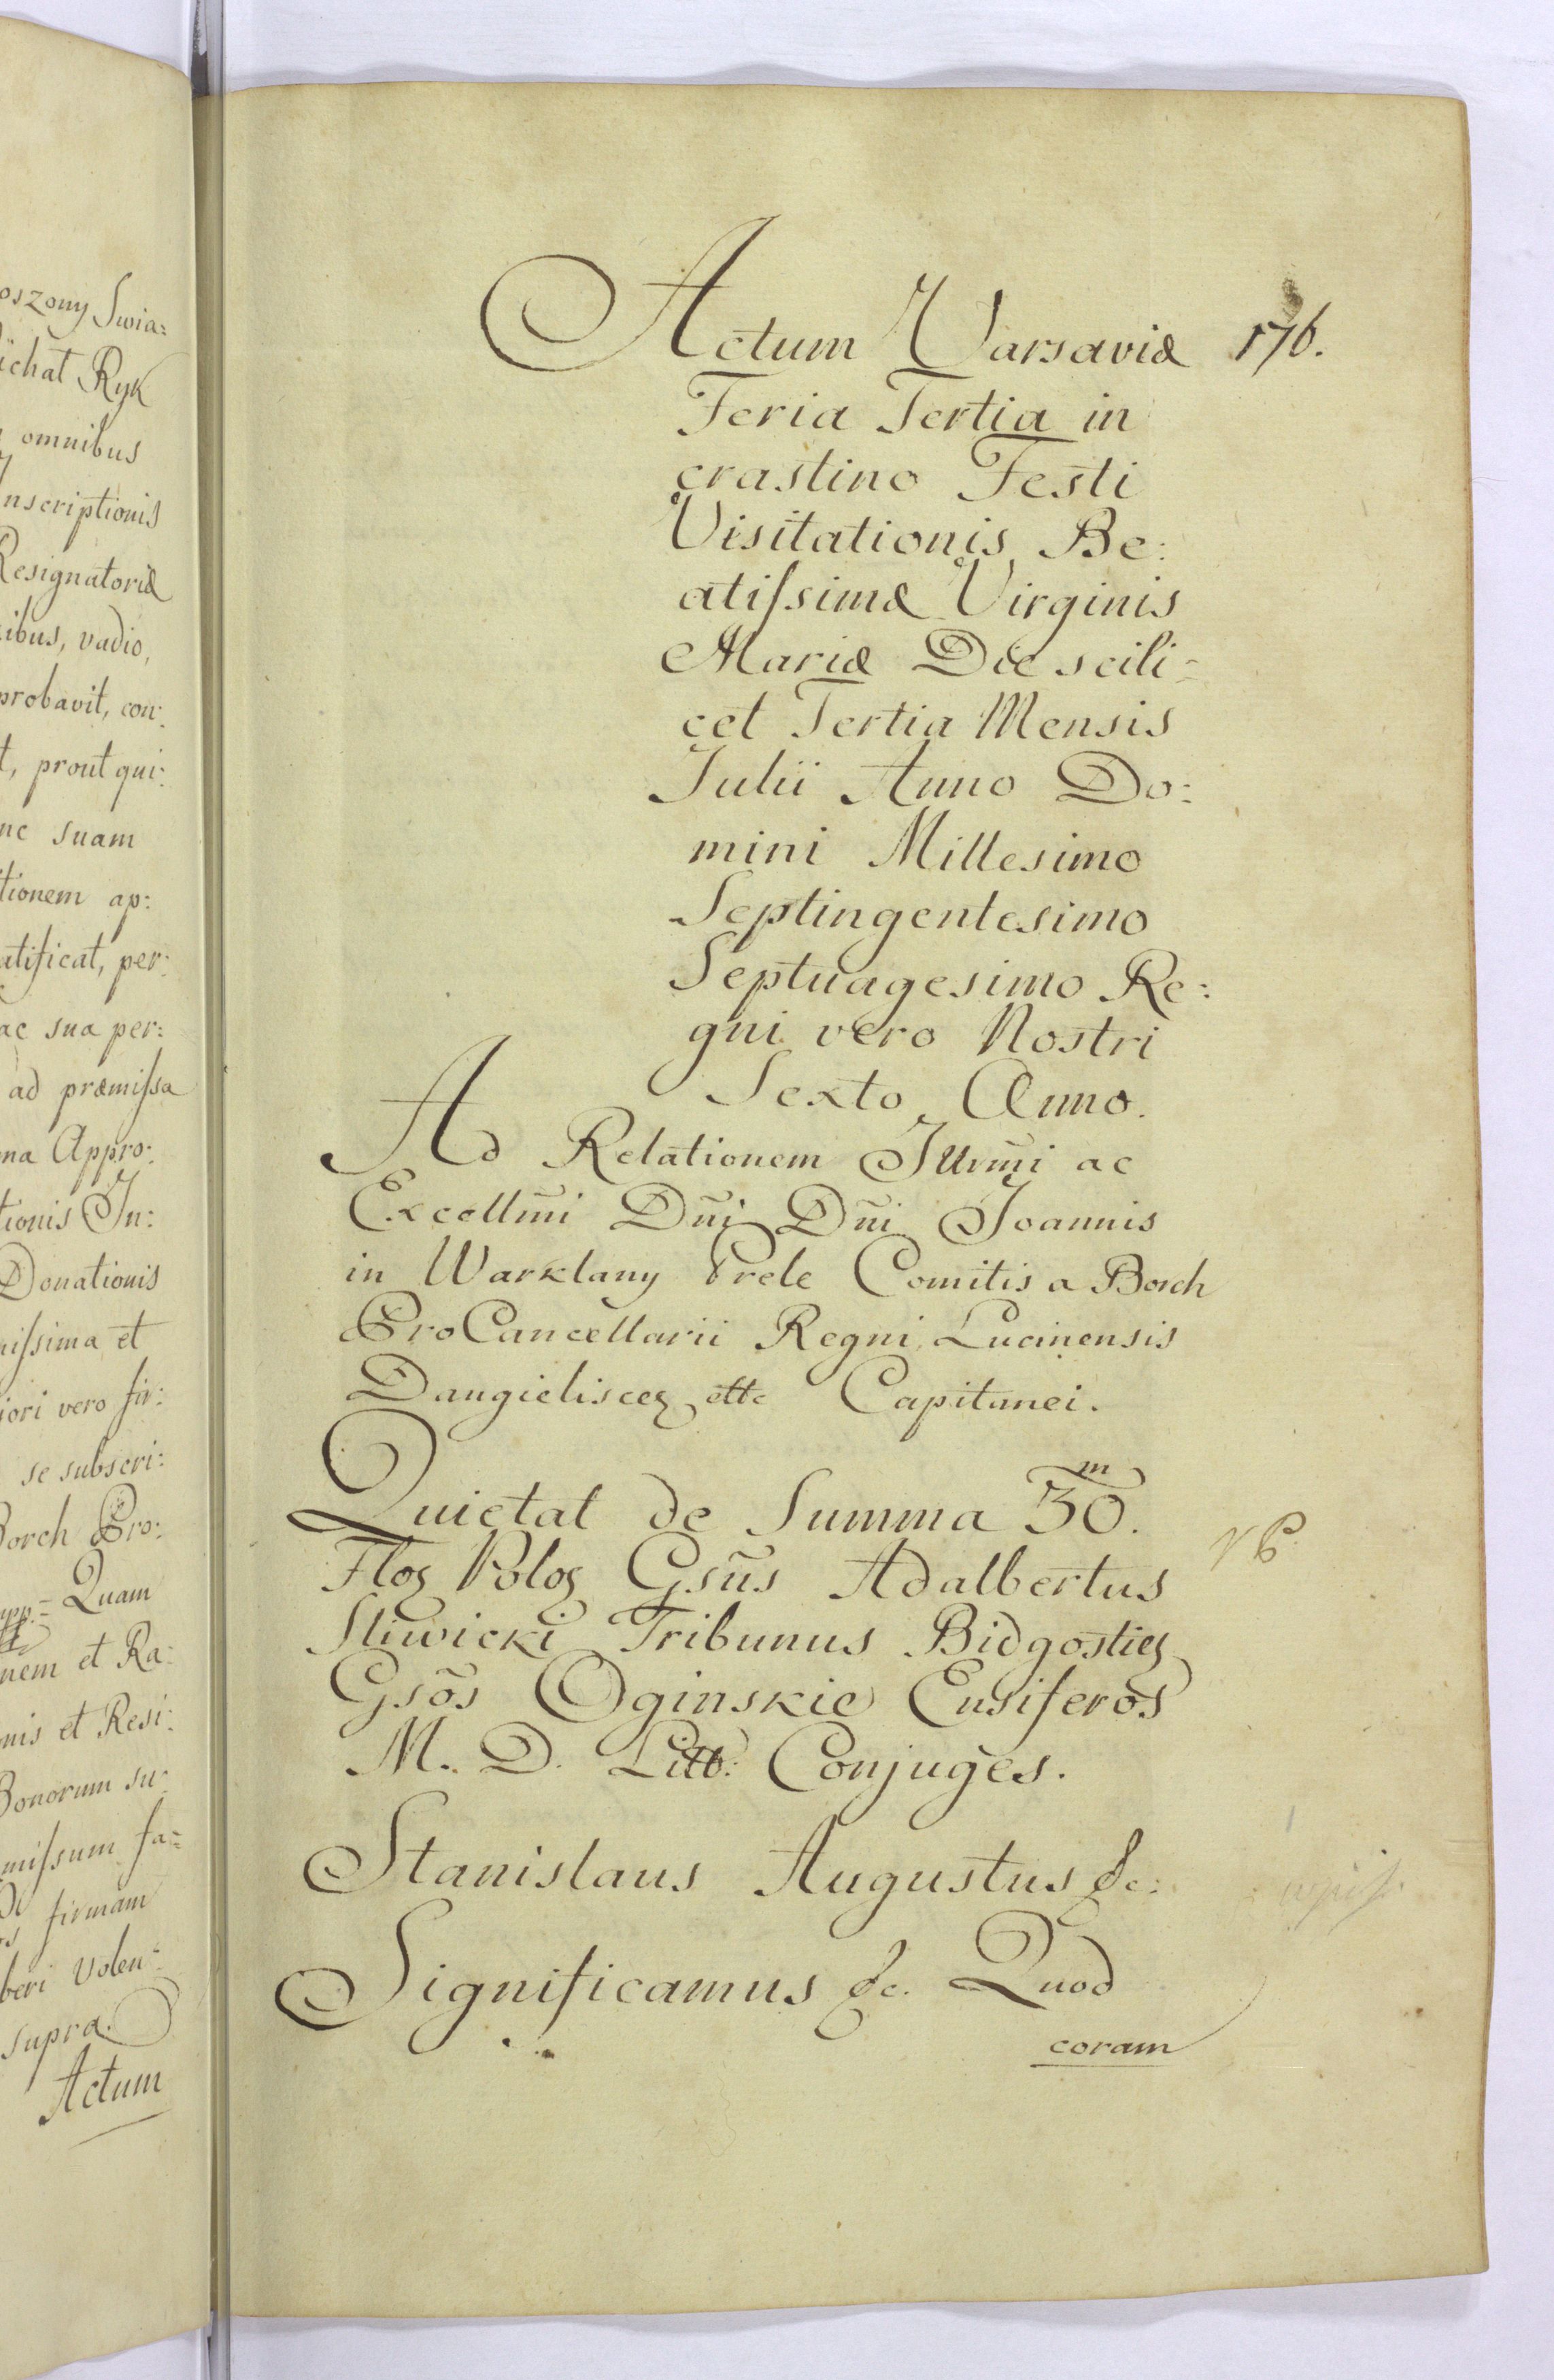 oszony Swia:
ichał Ryk
omnibus
nscriptionis
Resignatoriæ
ibus, vadio,
probavit, con:
t, prout qui:
nc suam
tionem ap:
atificat, per:
ac sua per:
ad præmissa
ma Appro:
tionis In:
Donationis
nissima et
iori vero fir:
se subscri:
Borch Pro:
mpp.= Quam
nem et Ra:
nis et Resi:
Bonorum su:
missum fa=
firmam
beri volen:
supra.
Actum
Actum Varsaviæ 176.
Feria Tertia in
crastino Festi
Visitationis Be:
atissimæ Virginis
Mariæ Die scili=
cet Tertia Mensis
Julii Anno Do:
mini Millesimo
Septingentesimo
Septuagesimo Re:
gni vero Nostri
Sexto Anno.
Ad Relationem Illrmi ac
Excellmi Dni Dni Joannis
in Warklany Prele Comitis a Borch
ProCancellarii Regni Lucinensis
Daugielisceȝ ettc Capitanei.
Quietat de Summa 30.m
Floȝ Poloȝ Gsus Adalbertus
Sliwicki Tribunus Bidgostieȝ
Gsos Oginskie Ensiferos
M. D. Litt: Conjuges.
Stanislaus Augustus &c:
Significamus &c. Quod
coram